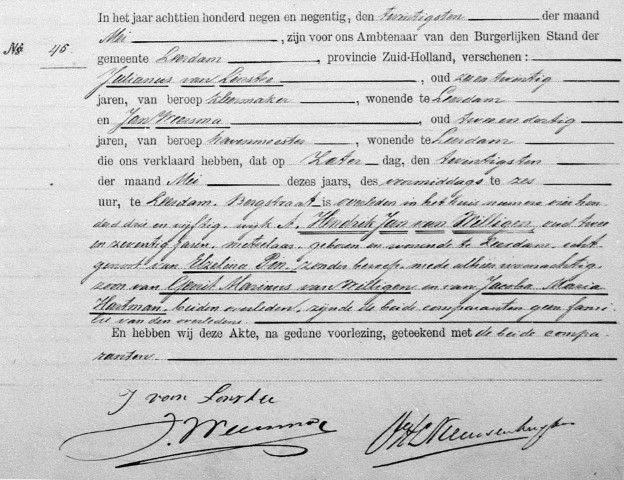 In het jaar achttien honderd negen en negentig, den twintigsten der maand
Mei, zijn voor ons Ambtenaar van den Burgerlijken Stand der
No. 45.
gemeente Leerdam, provincie Zuid-Holland, verschenen:
Julianus van, oud zes en twintig
jaren, van beroep kleermaker, wonende te Leerdam
en Jan Weersma, oud twee en dertig
jaren, van beroep havenmeester, wonende te Leerdam
die ons verklaard hebben, dat op Zater dag, den twintigsten
der maand Mei dezes jaars, des voormiddags te zes
uur, te Leerdam, Bergstraat, is overleden in het huis numero vier hon
derd drie en vijftig, wijk A, Hendrik Jan van Willigen, oud twee
en zeventig jaren, metselaar, geboren en wonende te Leerdam, echt
genoot van Elzelina Pen, zonder beroep, mede alhier woonachtig,
zoon van Gerrit Marinus van Willigen en van Jacoba Maria
Hartman, beiden overleden, zijnde de beide comparanten geen fami
lie van den overledene.
En hebben wij deze Akte, na gedane voorlezing, geteekend met de beide compa-
ranten.
J van
J. Weersma